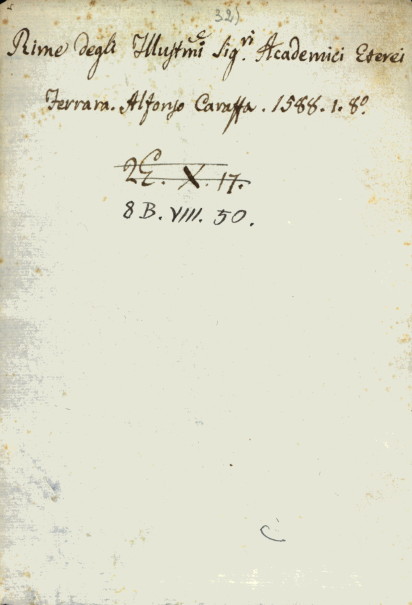 32)
Rime degli Illustmi Sig.ri Academici Eterei
Ferrara. Alfonso Caraffa. 1588. 1. 8º
2E. X. 17.
8 B. VIII. 50.